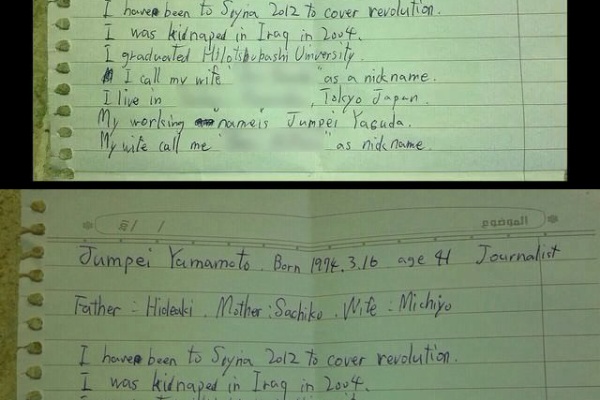 I have been to Syria 2012 to cover revolution.
I was kidnaped in Iraq in 2004.
I graduated Hitotshubashi University.
I call my wife " " as a nickname.
I live in , Tokyo Japan.
My working name is Jumpei Yasuda.
My wife call me " " as nickname.
/ / الموضوع
Jumpei Yamamoto. Born 1974.3.16 age 41 Journalist
Father : Hideaki. Mother : Sachiko. Wife : Michiyo
I have been to Syria 2012 to cover revolution.
I was kidnaped in Iraq in 2004.